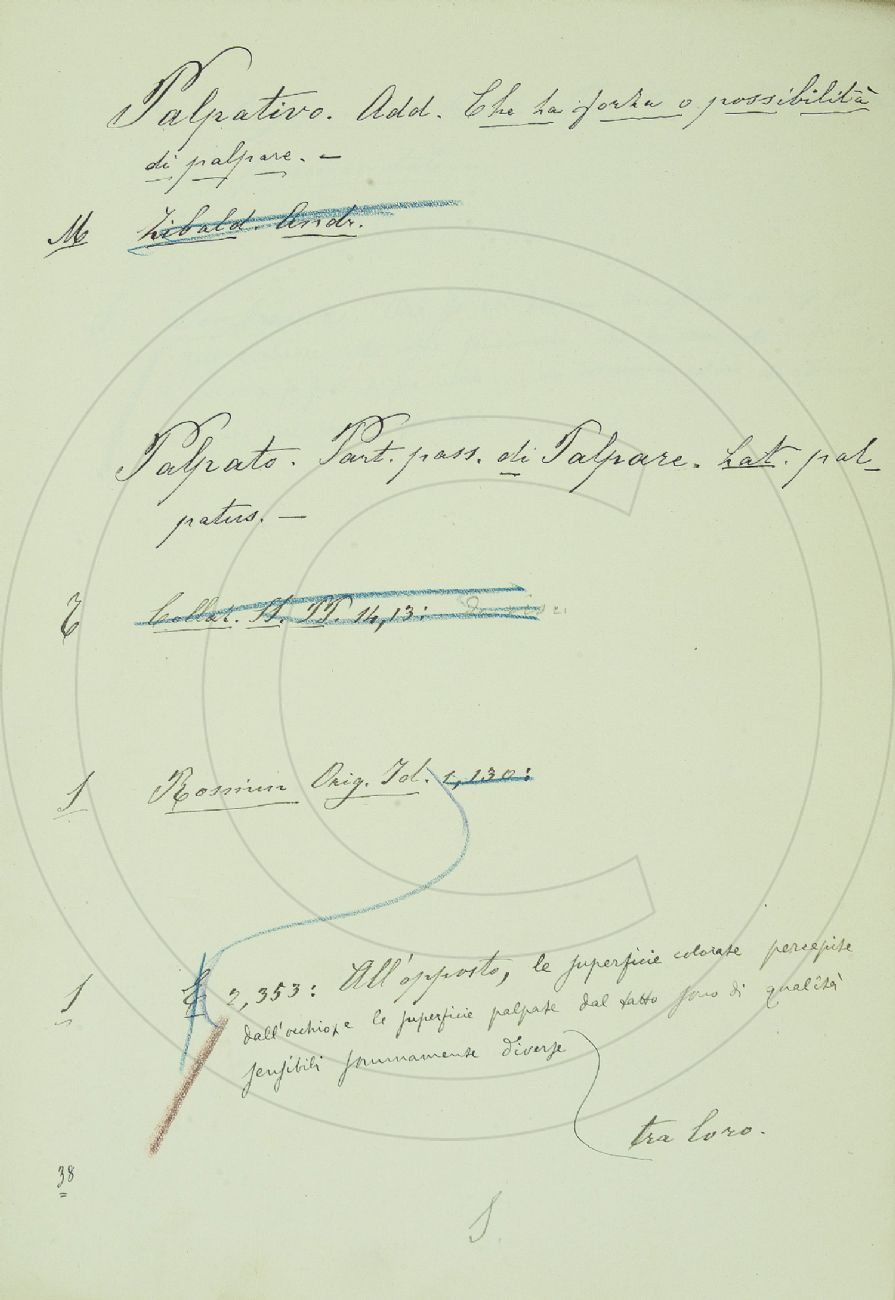 Palpativo. Add. Che ha forza o possibilità
di palpare. —
M Zibald. Andr.
Palpato. Part. pass. di Palpare. Lat. pal-
patus. —
T Collaz. SS. PP. 14,13:
S Rosmin Orig. Id. 1,130:
S E 2,353: All'opposto, le superficie colorate percepite
dall'occhio, e le superficie palpate dal tatto sono di qualità
sensibili sommamente diverse
tra loro.
38
S